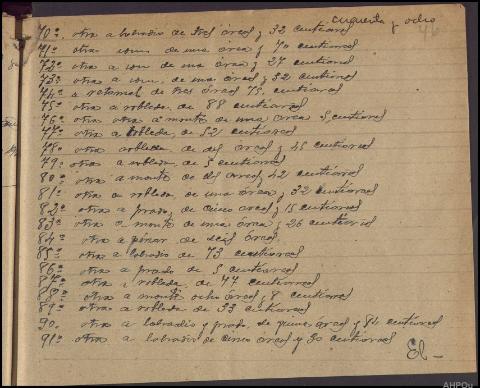 cincuenta y ocho
46
70ª. otra a labradio de tres áreas y 32 centiareas
71ª otra idem de una área y 70 centiareas
72ª otra a idem de una área y 27 centiareas
73ª otra a idem, de una área y 52 centiareas
74ª a retamal de tres áreas 75, centiareas
75ª otra a robleda, de 88 centiareas
76ª otra otra a monte de una área 5, centiareas
77ª otra a robleda, de 52 centiareas
78ª otra a robleda de dos areas y 45 centiareas
79ª otra a robleda, de 5 centiareas
80ª otra a monte de dos areas y 42 centiareas
81ª otra a robleda, de una área y 32 centiareas
82ª otra a prado, de cinco areas y 15 centiareas
83ª otra a monte de una área y 26 centiareas
84ª otra a pinar de seis áreas.
85ª otra a labradio de 73 centiareas
86ª otra a prado de 5 centiareas
87ª otra a robleda, de 77 centiareas
88ª otra a monte ocho áreas y 8 centiareas
89ª otra a robleda de 33 centiareas
90. otra a labradio y prado, de áreas y 82 centiareas
91ª otra a labradio de cinco areas y 50 centiareas
El -
AHPOu